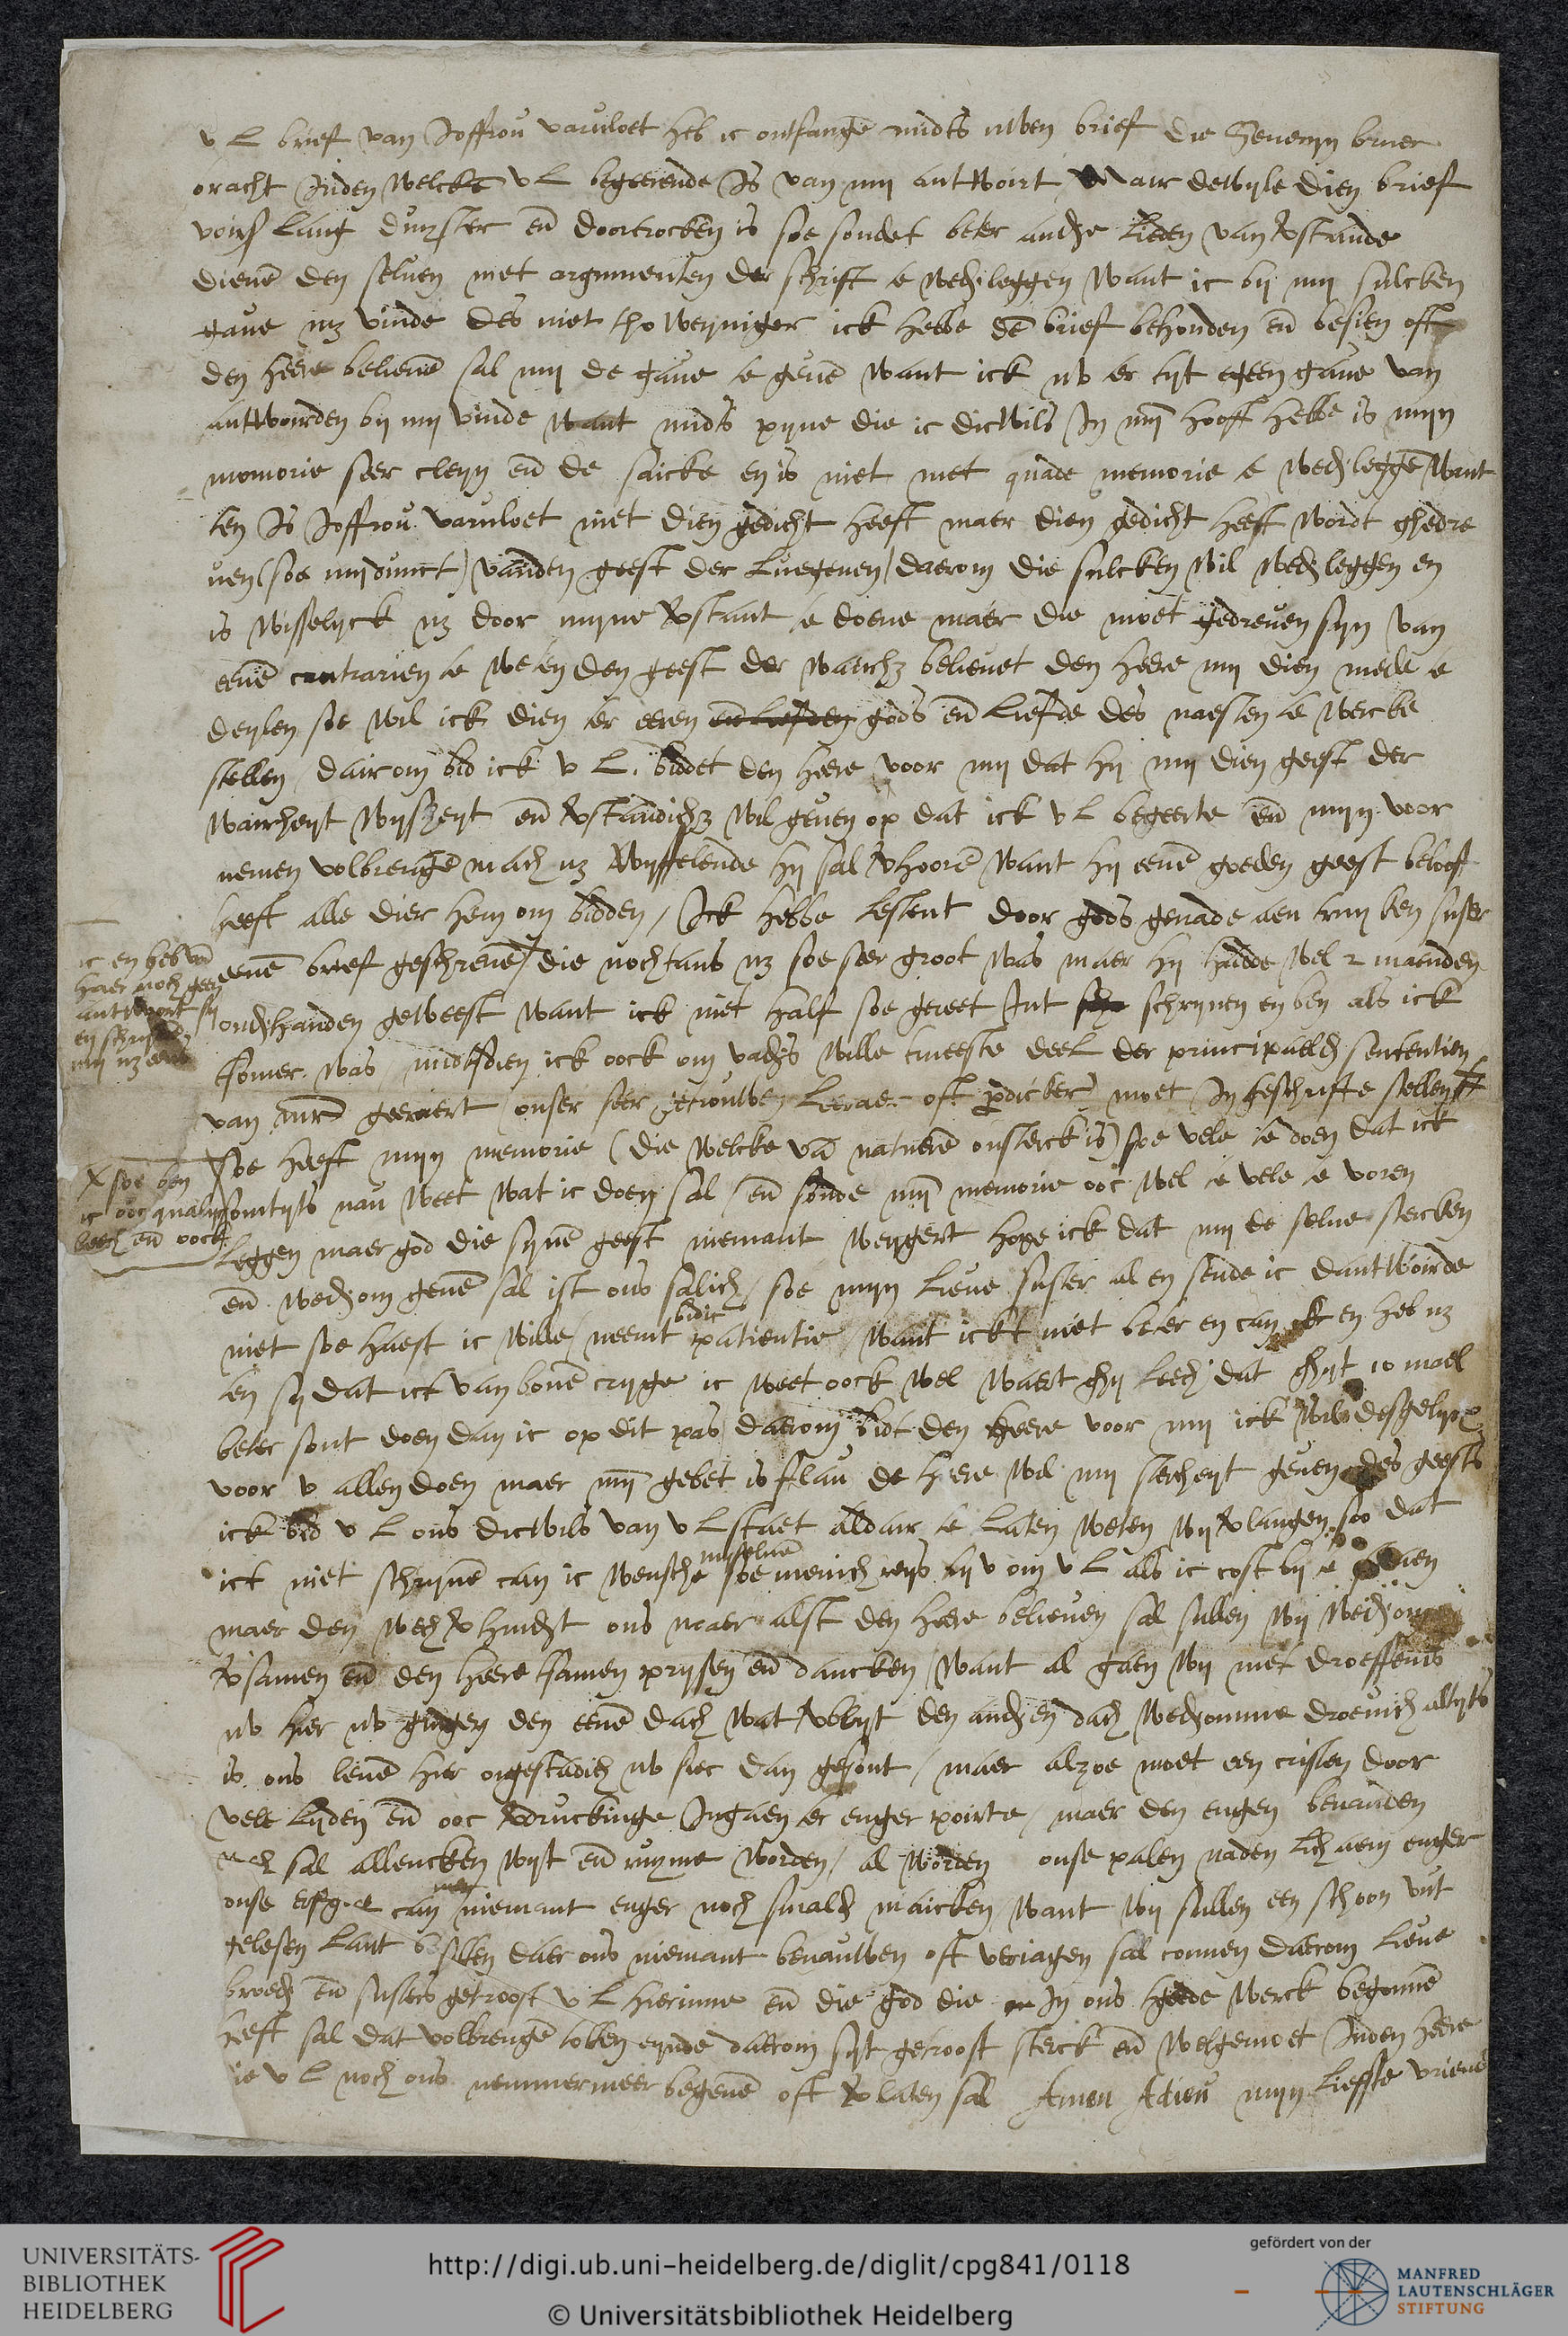 v L brief van Joffrou varuloet heb ic ontfangē midts uwen brief die Severyn bruer
bracht Inden welcke v L begeerende is van my antwoirt Mair dewyle dien brief
lang duyster eñ doortrocken is soe soudet beter andere lieden van verstande
dienē den selven met argumenten der schrift te wederleggen want ic by my sulcken
gave niet vinde des niet tho weyniger ick hebbe dē brief behouden eñ besien oft
den heere believē sal my de gave te gevē want ick nv ter tyt egeen gave van
antwoirden by my vinde want mids pyne die ic dicwils In mȳ hooft hebbe is myn
memorie seer cleyn eñ de saicke en is niet met quade memorie te wederleggē want
ten Is Joffrou varuloet niet dien gedicht heeft maer dien gedicht heeft wordt ghedre
ven (soe my dunct) vanden geest der Luegenen / daerom die sulcken wil wederleggen en
is wisselyck niet door myne verstant te doene maer die moet gedreven syn van
eenē contrarien te weten den geest der waerheit believet den heere my dien mede te
deylen soe wil ick dien ter eeren eñ liefden gods eñ liefde des naesten te wercke
stellen / dairom bid ick v L. biddet den heere voor my dat hy my dien geest der
wairheyt wysheyt eñ verstandicheit wil geven op dat ick v L begeerte eñ myn voor
nemen volbrengē mach niet twyffelende hy sal verhoorē want hy eenē goeden geest belooft
heeft alle dier hem om bidden / Ick hebbe lestent door gods genade aen truyken suster
eenē brief geschrevē / die nochtans niet soe seer groot was maer hy hadde wel 2 maenden
onderhanden geweest want ick niet half soe gereet Int schryven en ben als ick
somer was / midtsdien ick oock om vaders wille tmeeste deel der principaelder sententien
van geeraert (onser seer getrouwen Leeraer oft predicker) moet In geschrifte stellen
soe heeft myn memorie (die welcke vā natuerē onsterck is) soe vele te doen dat ick
somtyts nau weet wat ic doen sal / eñ soude mȳ memorie ooc wel te vele te voren
leggen maer god die synē geest niemant weygert hope ick dat my de selve stercken
eñ wederom gevē sal ist ons salich / soe myn lieve suster al en sende ic dantwoirde
niet soe haest ic wille / neemt bidic patientie / want ickt niet beter en can ick en heb niet
ten sy dat ict van bovē cryge ic weet oock wel waert ghy leedich dat ghyt 10 mael
beter sout doen dan ic op dit pas / daerom bidt den heere voor my ick wils desgelycx
voor v allen doen maer mȳ gebet is flau de heere wil my stercheyt geven des geests
ick bid v L ons dicwils van v L staet aldair te laten weten wy verlangen soo dat
ict niet schryvē can ic wensche myselvē soe menich reys by v om v L als ic cost by te staen
maer den wech verhindert ons maer alst den heere believen sal sullen wy wederom
versamen eñ den heere tsamen prysen eñ dancken / want al gaen wy met droeffenis
nv hier nv gingen den eenē dach wat verblyt den anderen dach wederomme droevich altyts
is ons levē hier ongestadich nv siec dan gesont / maer alzoe moet een cristen door
vele lyden eñ ooc verdruckinge Ingaen ter enger poirte / maer den engen benauden
wech sal allencken wyt eñ ruyme worden / al worden onse palen naden lichaem enger
onse can niemant enger noch smalder maicken want wy sullen een schoon wt
gelesen lant besitten daer ons niemant benauwen oft veriagen sal connen daerom lieve
broeders eñ susters getroost v L hierinne eñ die god die In ons tgoede werck begonnē
heeft sal dat volbrengē totten eynde daerom syt getroost sterck eñ welgemoet Inden heere
die v L noch ons nemmermeer begevē oft verlaten sal Amen Adieu myn Liefste vriendē
ic en heb vā
haer noch geen
antwoort sy
en schryft
my niet eens
x soe ben
ic ooc qualick
leedich eñ oock
UNIVERSITÄTS-
BIBLIOTHEK
HEIDELBERG
http://digi.ub.uni-heidelberg.de/diglit/cpg841/0118
© Universitätsbibliothek Heidelberg
gefördert von der
MANFRED
LAUTENSCHLÄGER
STIFTUNG